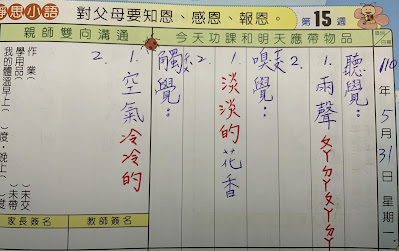 靜思小語 對父母要知恩、感恩、報恩。 第15週
親師雙向溝通 今天功課和明天應帶物品
110年5月31日星期一
聽覺：
1. 雨聲
2.
嗅覺：
1. 淡淡的花香
2.
觸覺：
1. 空氣冷冷的
2.
作業 ( )未交
學用品 ( )未帶
我的體溫早上( )度，晚上( )度
家長簽名 教師簽名